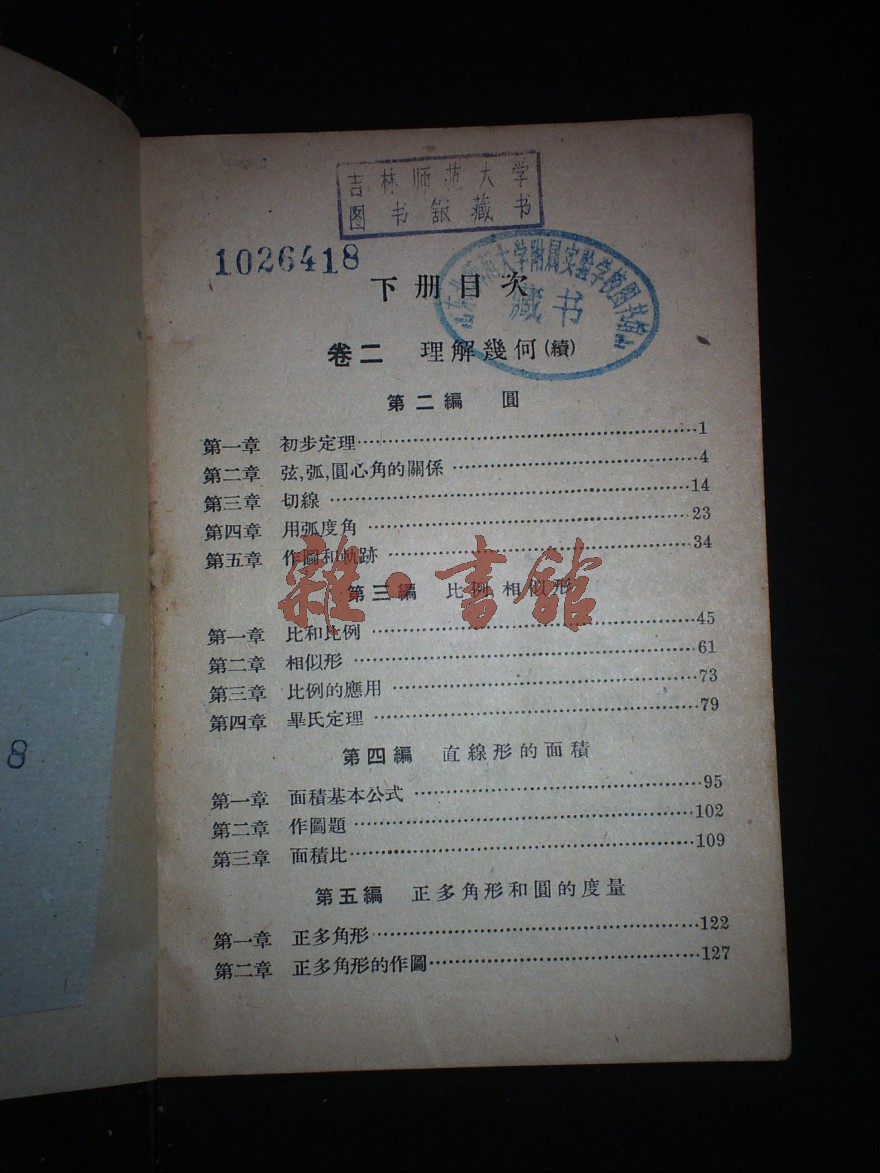 吉林师范大学
图书馆藏书
1026418
范大学附属实验学校图书馆
藏书
下册目次
卷二 理解幾何(續)
第二編 圓
第一章 初步定理 1
第二章 弦,弧,圓心角的關係 4
第三章 切線 14
第四章 用弧度角 23
第五章 作圖和軌跡 34
雜·書館
第三編 比例,相似形
第一章 比和比例 45
第二章 相似形 61
第三章 比例的應用 73
第四章 畢氏定理 79
第四編 直線形的面積
第一章 面積基本公式 95
第二章 作圖題 102
第三章 面積比 109
第五編 正多角形和圓的度量
第一章 正多角形 122
第二章 正多角形的作圖 127
8